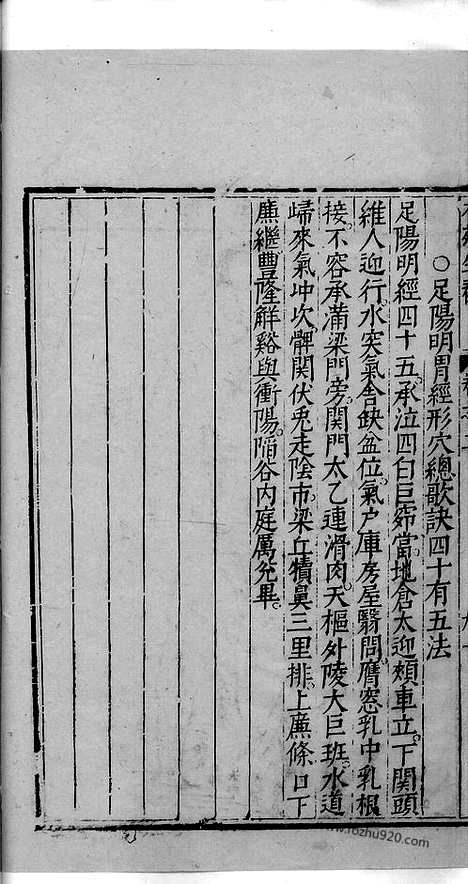 ○足陽明胃經形穴總歌訣四十有五法
足陽明經四十五承泣四白巨窌當地倉大迎頰車立下關頭
維人迎行水突氣舍缺盆位氣户庫房屋翳問膺窓乳中乳根
接不容承滿梁門旁關門太乙連滑肉天樞外陵大巨班水道
歸來氣冲次髀關伏兎走陰市梁丘犢鼻三里排上廉條口下
廉繼豐隆解谿與衝陽陷谷内庭厲兊畢
www.fozhu920.com